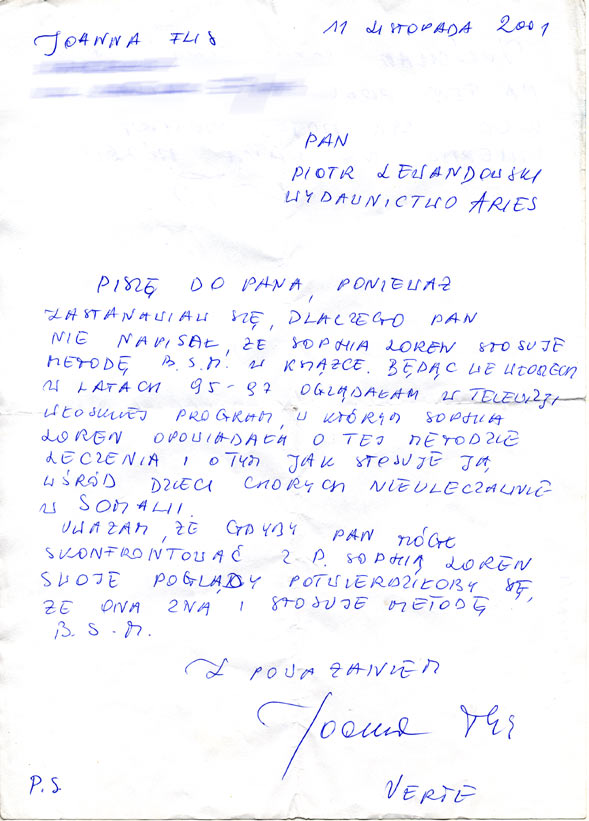 JOANNA FLIS
11 LISTOPADA 2001
PAN
PIOTR LEWANDOWSKI
WYDAWNICTWO ARIES
PISZĘ DO PANA, PONIEWAŻ
ZASTANAWIAM SIĘ, DLACZEGO PAN
NIE NAPISAŁ, ŻE SOPHIA LOREN STOSUJE
METODĘ B.S.M. W KSIĄŻCE. BĘDĄC WE WŁOSZECH
W LATACH 95-97 OGLĄDAŁAM W TELEWIZJI
WŁOSKIEJ PROGRAM, W KTÓRYM SOPHIA
LOREN OPOWIADAŁA O TEJ METODZIE
LECZENIA I O TYM JAK STOSUJE JĄ
WŚRÓD DZIECI CHORYCH NIEULECZALNIE
W SOMALII.
UWAŻAM, ŻE GDYBY PAN MÓGŁ
SKONFRONTOWAĆ Z P. SOPHIĄ LOREN
SWOJE POGLĄDY POTWIERDZIŁOBY SIĘ,
ŻE ONA ZNA I STOSUJE METODĘ
B.S.M.
Z POWAŻANIEM
Joanna Flis
P.S
VERTE